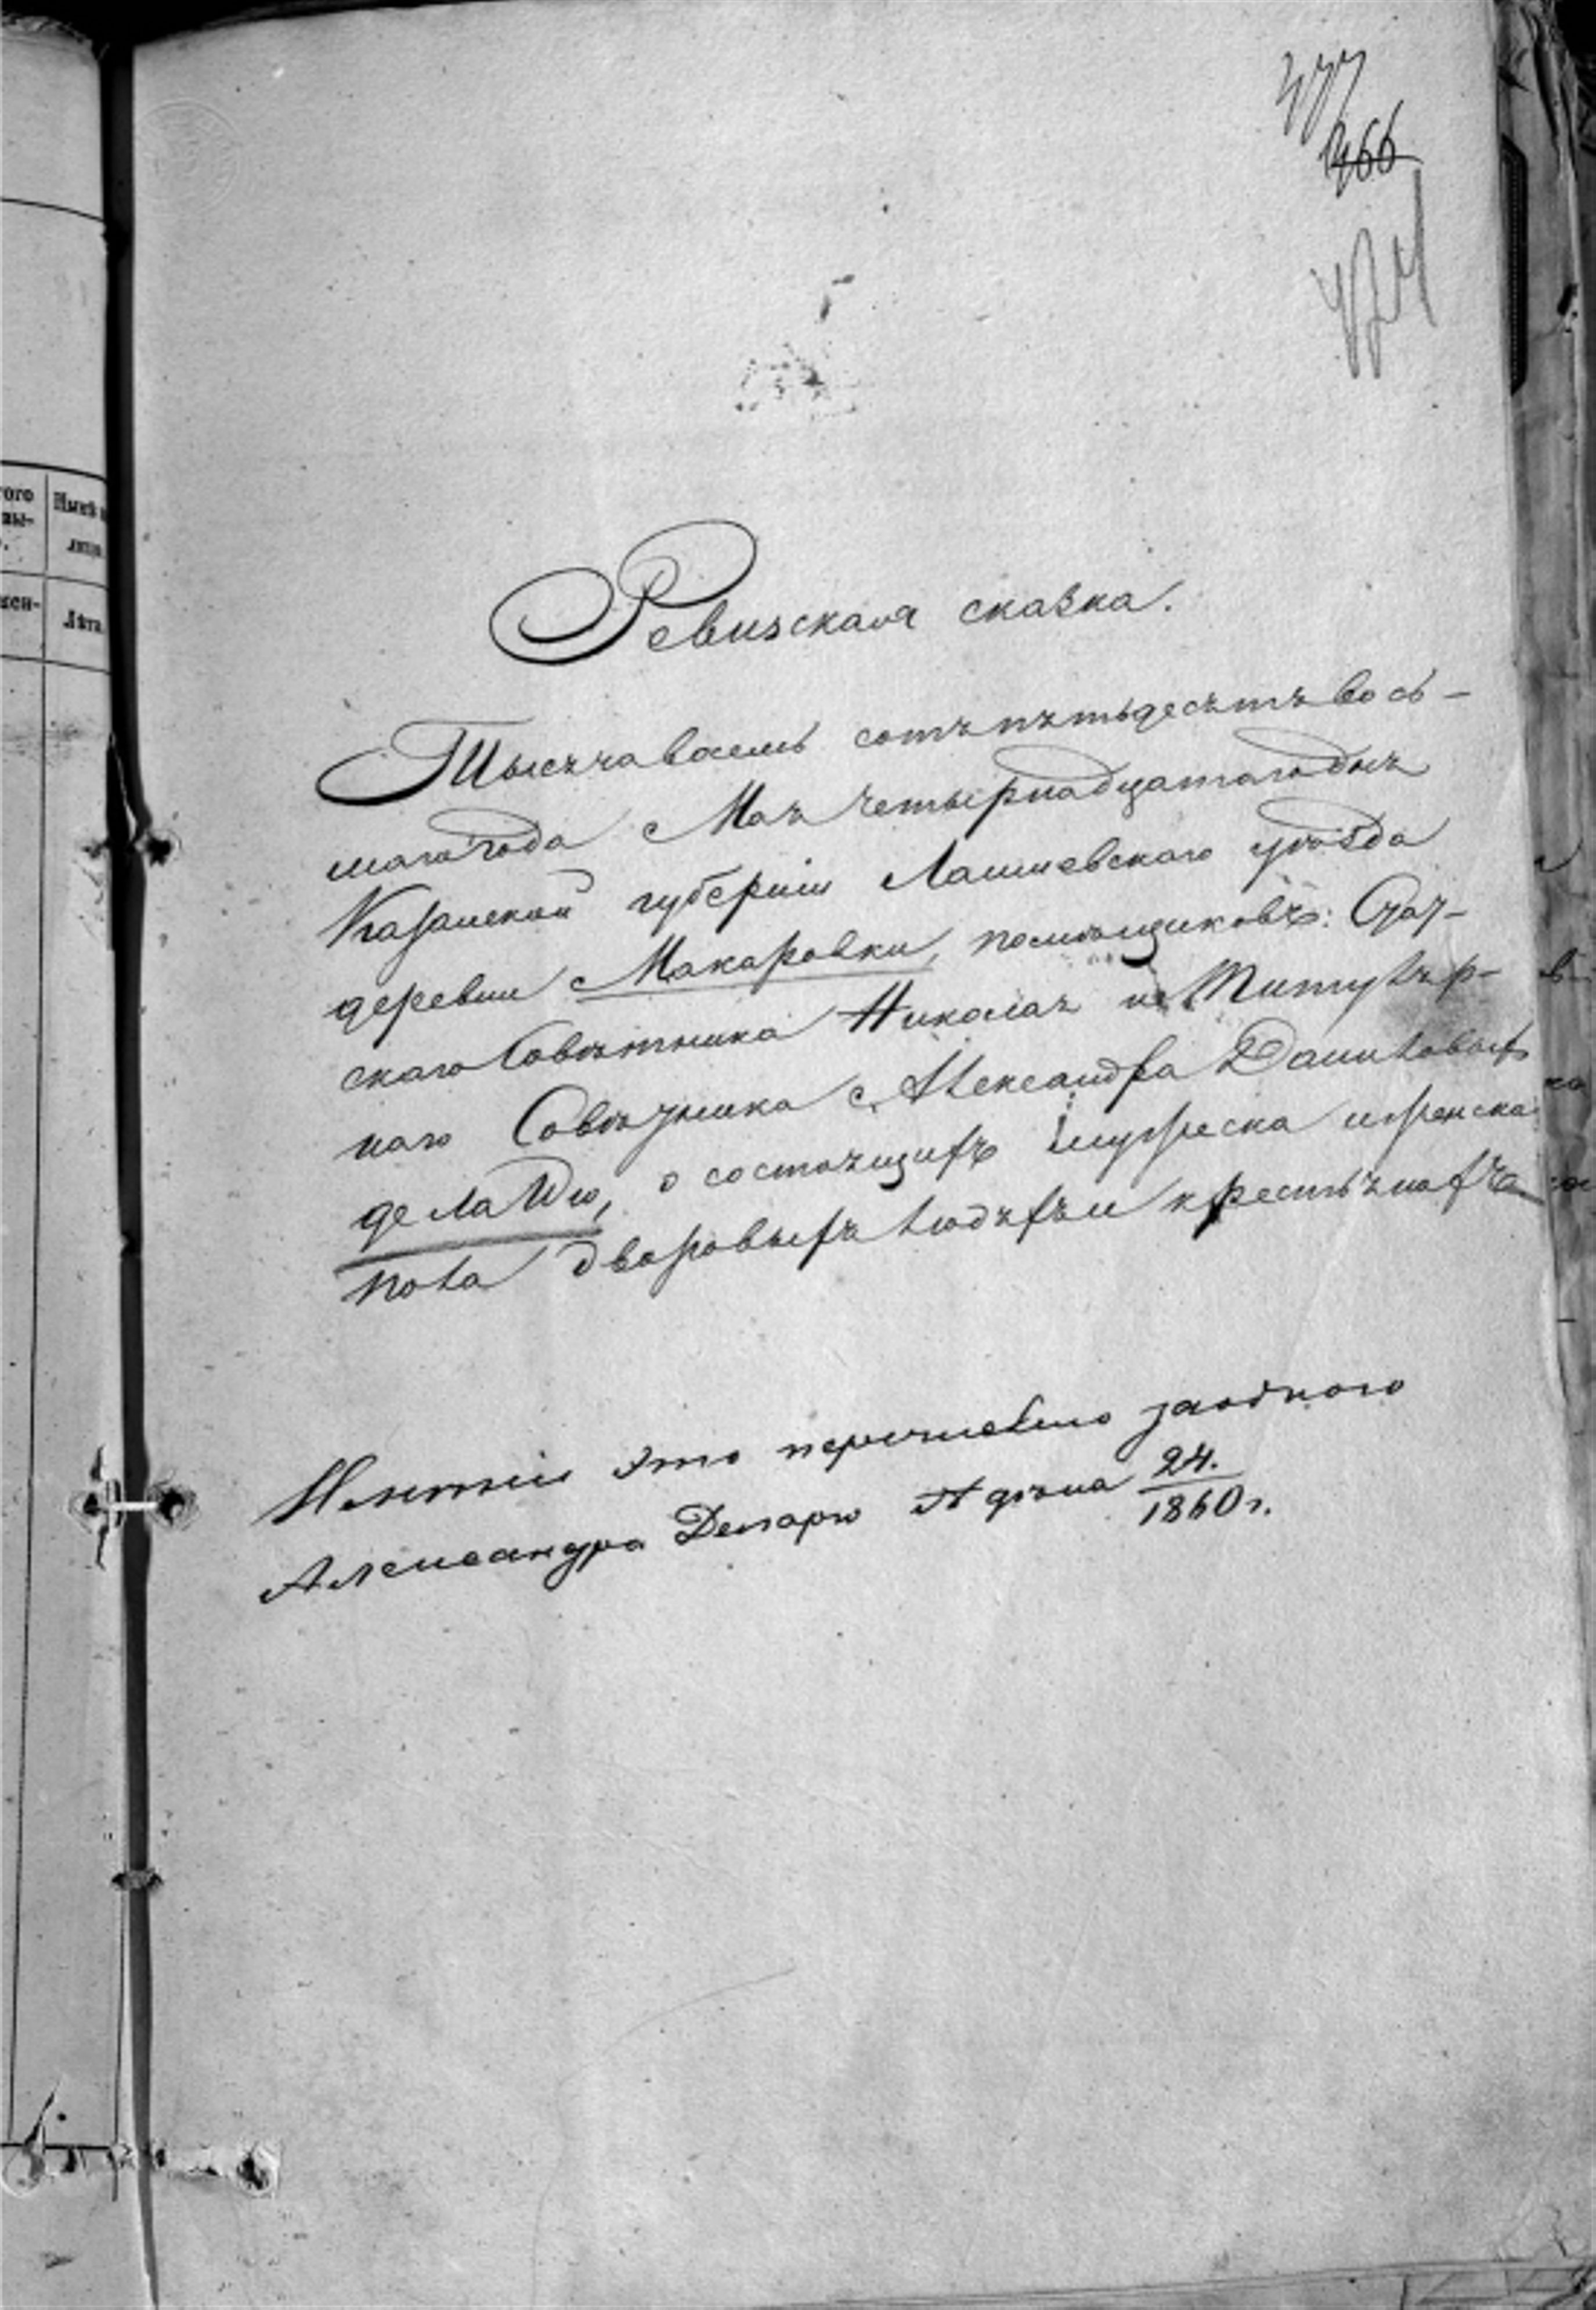 477
466
Ревизская сказка.
Тысяча восемь сотъ пятьдесятъ вось-
маго года Мая четырнадцатаго дня
Казанской губерніи Лаишевскаго уѣзда
деревни Макаровки, помѣщиковъ: Стат-
скаго Совѣтника Николая и Титуляр-
наго Совѣтника Александра Даниловыхъ
де ла Рю, о состоящихъ мужеска и женска
пола дворовыхъ людяхъ и крестьянахъ
Имѣніе это перечислено за одного
Александра Деларю 24.
1860 г.
того
Нынѣ
лица
Лѣта